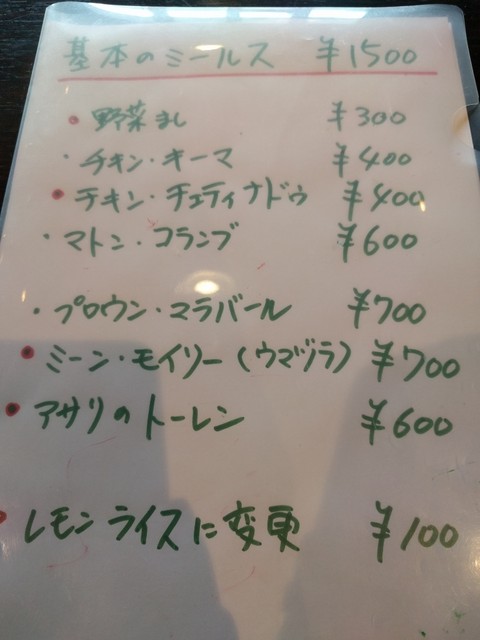 基本のミールス ¥1500
• 野菜まし ¥300
・チキン・キーマ ¥400
• チキン・チェティナドゥ ¥400
・マトン・コランブ ¥600
・プロウン・マラバール ¥700
• ミーン・モイリー(ウマヅラ) ¥700
• アサリのトーレン ¥600
• レモンライスに変更 ¥100